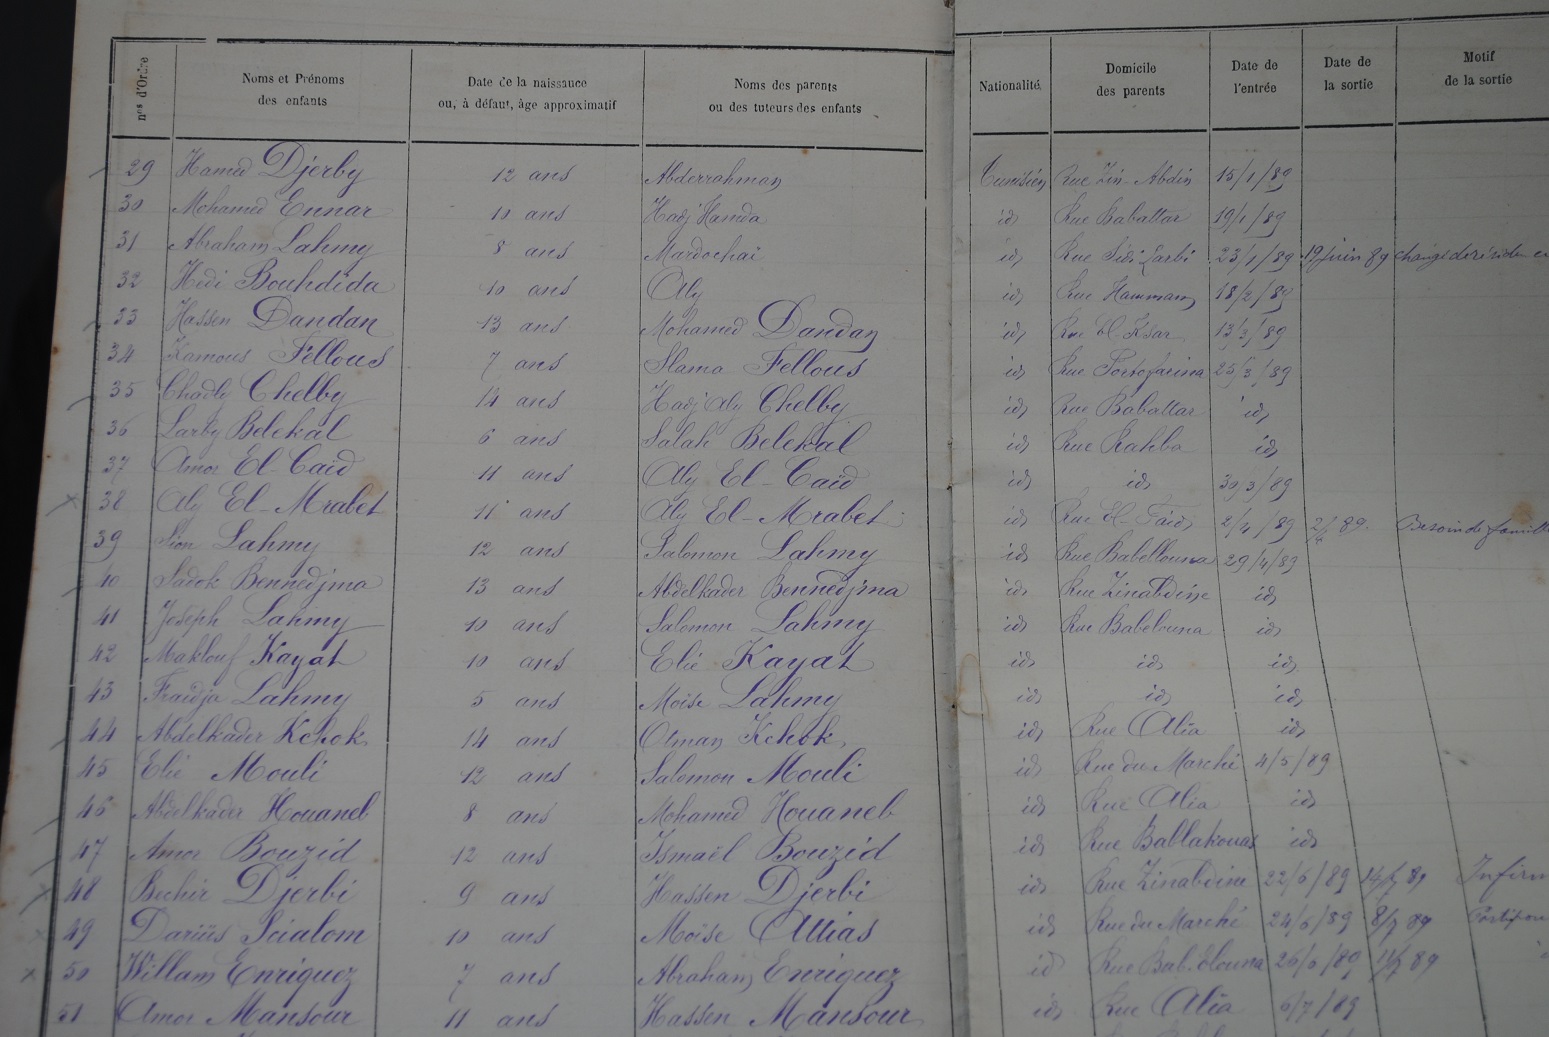 nos d'Ordre Noms et Prénoms des enfants Date de la naissance ou, à défaut, âge approximatif Noms des parents ou des tuteurs des enfants Nationalité Domicile des parents Date de l'entrée Date de la sortie Motif de la sortie
29 Hamed Djerby 12 ans Abderrahman Tunisien Rue Zin-Abdin 15/1/89
30 Mohamed Ennar 10 ans Hadj Hamda id Rue Babattar 19/1/89
31 Abraham Lahmy 8 ans Mardochai id Rue Sidi Larbi 23/1/89 19 juin 89 changé de résiden
32 Hedi Bouhdida 10 ans Aly id Rue Hammam 18/2/89
33 Hassen Dandan 13 ans Mohamed Dandan id Rue El Ksar 13/3/89
34 Kamous Fellous 7 ans Slama Fellous id Rue Portofarina 25/3/89
35 Chadly Chelby 14 ans Hadj Aly Chelby id Rue Babattar id
36 Larby Belekal 6 ans Salah Belekal id Rue Rahba id
37 Amor El-Caïd 11 ans Aly El-Caïd id id 30/3/89
38 Aly El-Mrabet 11 ans Aly El-Mrabet id Rue El-Faïd 2/4/89 89 Besoin de famille
39 Sion Lahmy 12 ans Salomon Lahmy id Rue Babellouna 29/4/89
40 Sadok Bennedjma 13 ans Abdelkader Bennedjma id Rue Zinabdine id
41 Joseph Lahmy 10 ans Salomon Lahmy id Rue Babelouna id
42 Maklouf Kayat 10 ans Elie Kayat id id id
43 Fraïdja Lahmy 5 ans Moïse Lahmy id id id
44 Abdelkader Kchok 14 ans Otman Kchok id Rue Alia id
45 Elie Mouli 12 ans Salomon Mouli id Rue du Marché 4/5/89
46 Abdelkader Houaneb 8 ans Mohamed Houaneb id Rue Alia id
47 Amor Bouzid 12 ans Ismaël Bouzid id Rue Bablakouas id
48 Bechir Djerbi 9 ans Hassen Djerbi id Rue Zinabdine 22/6/89 Infirm
49 Dariüs Scialom 10 ans Moïse Attias id Rue du Marché 24/6/89 8/7 89
50 Willam Enriquez 7 ans Abraham Enriquez id Rue Bab.elouna 26/6/89
51 Amor Mansour 11 ans Hassen Mansour id Rue Alia 6/7/89